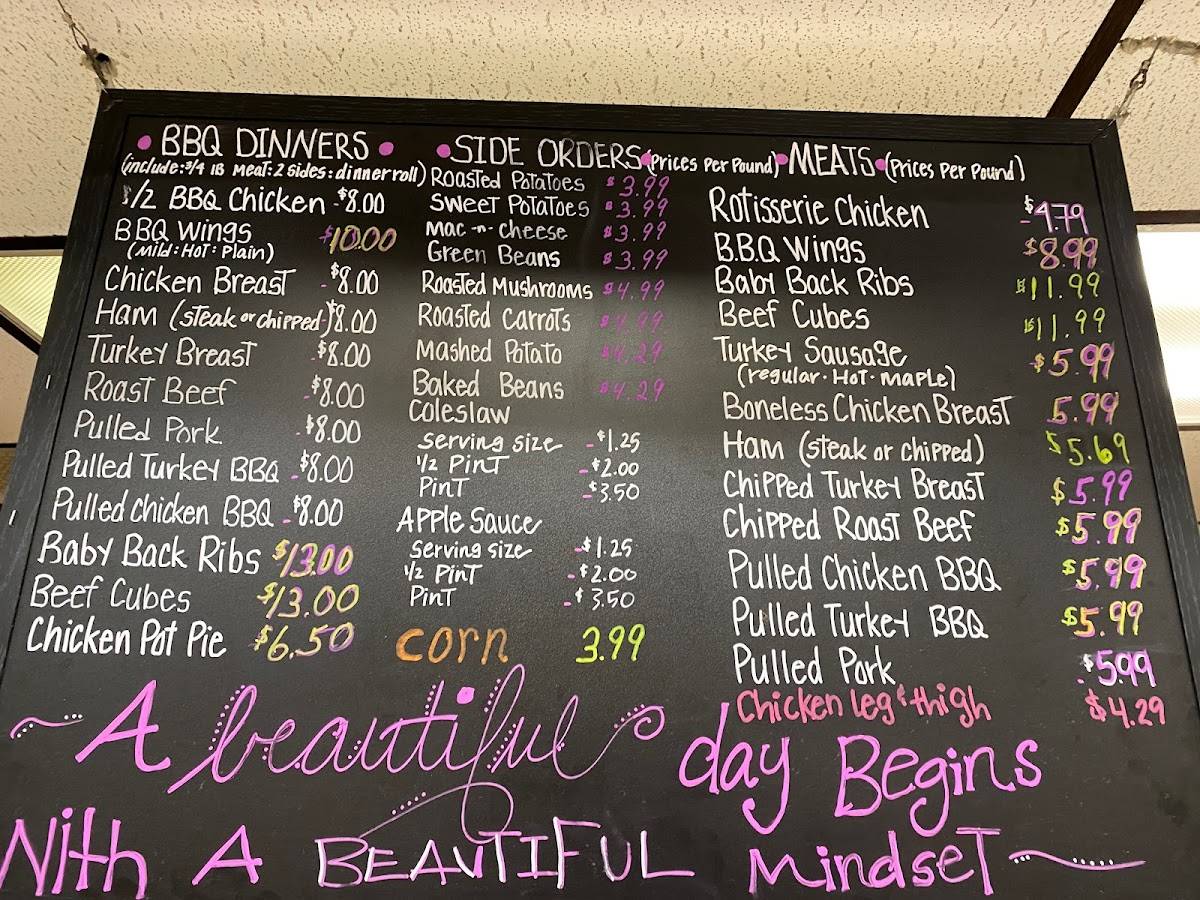 • BBQ DINNERS •
(include: 3/4 lb meat: 2 sides: dinner roll)
1/2 BBQ Chicken - $8.00
BBQ Wings $10.00
(Mild: Hot: Plain)
Chicken Breast - $8.00
Ham (steak or chipped) - $8.00
Turkey Breast - $8.00
Roast Beef - $8.00
Pulled Pork - $8.00
Pulled Turkey BBQ - $8.00
Pulled Chicken BBQ - $8.00
Baby Back Ribs $13.00
Beef Cubes $13.00
Chicken Pot Pie $6.50
• SIDE ORDERS • (Prices Per Pound)
Roasted Potatoes $3.99
Sweet Potatoes $3.99
Mac-n-Cheese $3.99
Green Beans $3.99
Roasted Mushrooms $4.99
Roasted Carrots $4.99
Mashed Potato $4.29
Baked Beans $4.29
Coleslaw
Serving size - $1.25
1/2 Pint - $2.00
Pint - $3.50
Apple Sauce
Serving size - $1.25
1/2 Pint - $2.00
Pint - $3.50
Corn 3.99
• MEATS • (Prices Per Pound)
Rotisserie Chicken - $4.79
B.B.Q Wings $8.99
Baby Back Ribs $11.99
Beef Cubes $11.99
Turkey Sausage - $5.99
(regular · Hot · maple)
Boneless Chicken Breast 5.99
Ham (steak or chipped) $5.69
Chipped Turkey Breast $5.99
Chipped Roast Beef $5.99
Pulled Chicken BBQ $5.99
Pulled Turkey BBQ $5.99
Pulled Pork - $5.99
Chicken leg & thigh $4.29
A beautiful day Begins
With A BEAUTIFUL Mindset